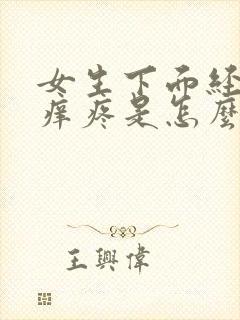 女生下面经
痒疼是怎麼
王興偉